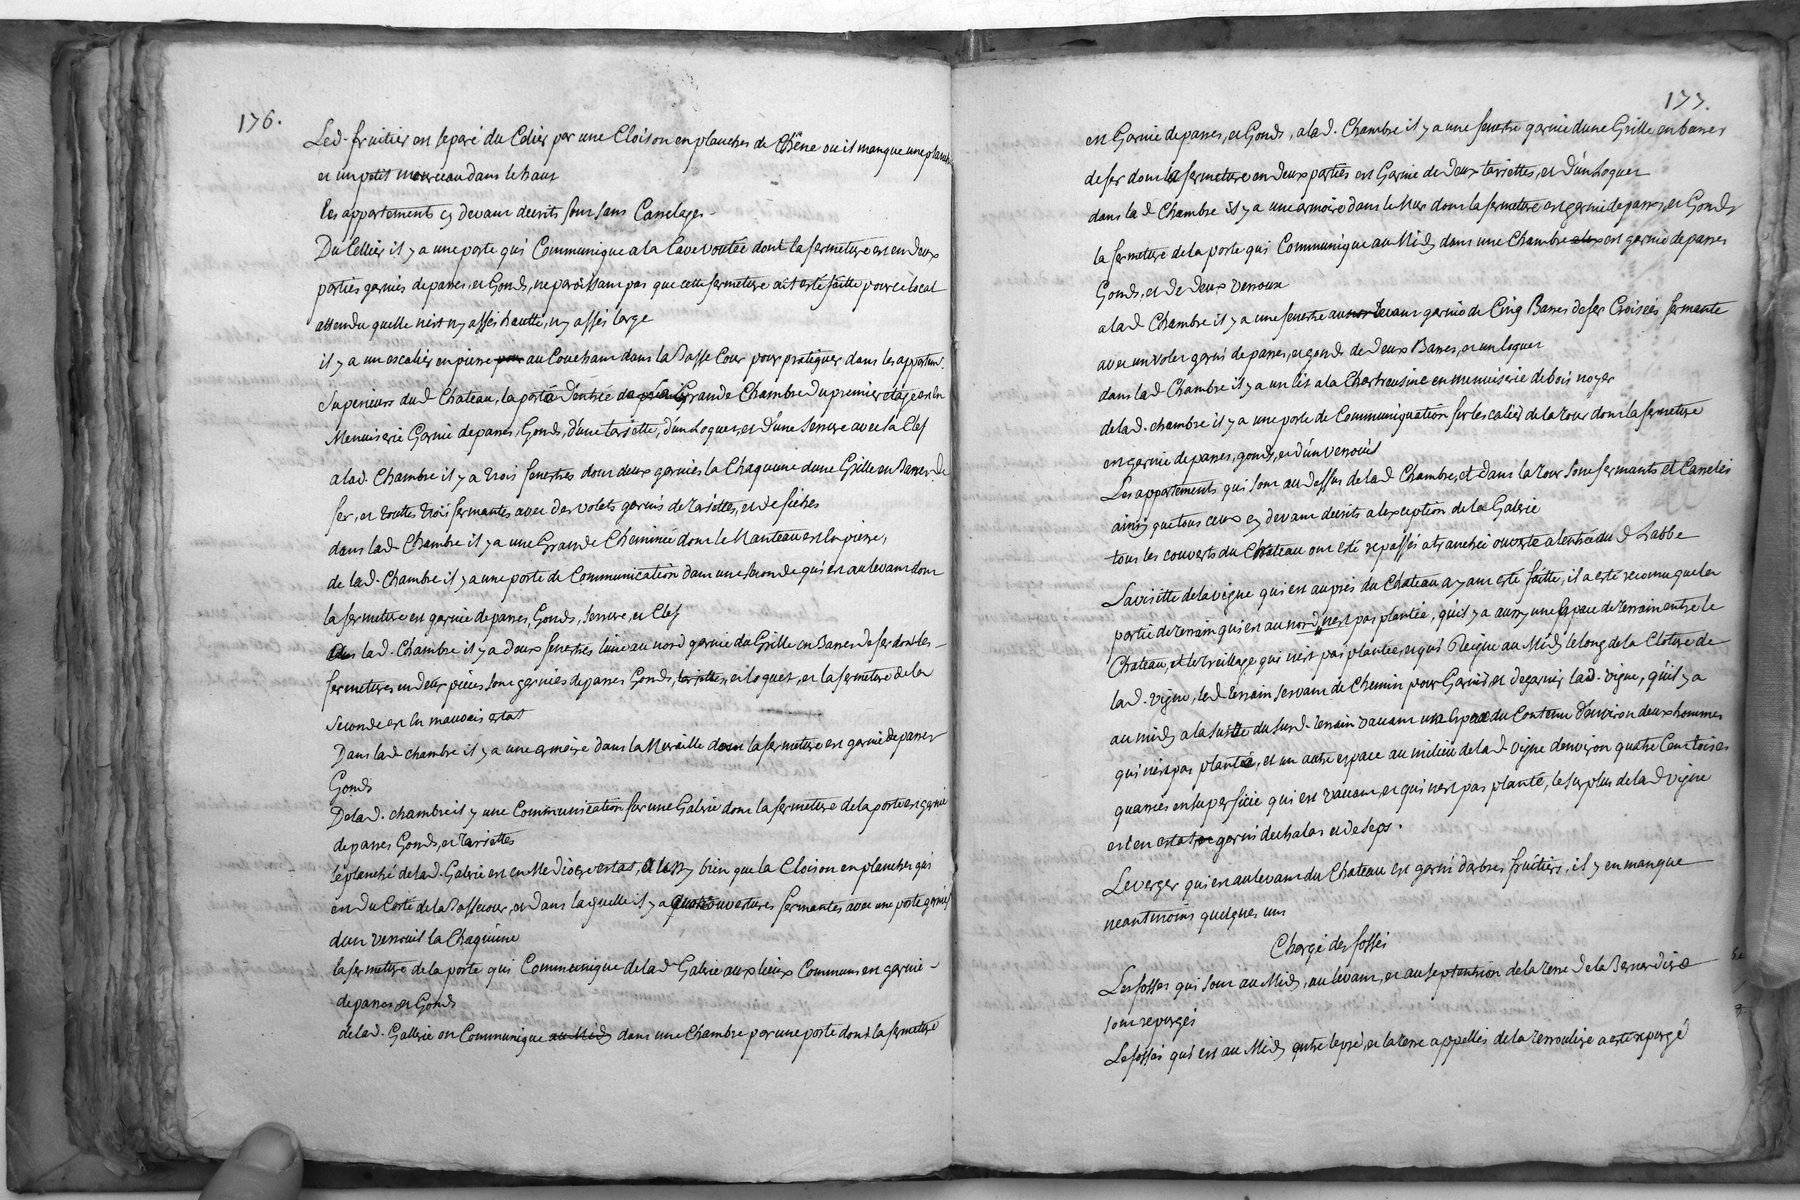 176.
Led. fruitier est separé du Celier par une Cloison en planches de Chêne ou il manque une planche
et un petit morceau dans le haut
Les appartements cy devant décrits sont sans Carrelages.
Du Cellier il y a une porte qui Communique a la Cave voutée dont la fermeture est en deux
parties garnies de panes, et Gonds, ne paroissant pas que cette fermeture ait esté faitte pour ce local
attendu quelle n'est ny assés hautte, ny assés large
il y a un escalier en pierre au Couchant dans la Basse Cour pour pratiquer dans les appartem.
Superieurs du d. Chateau, la porte d'entrée grande Chambre du premier étage est en
Menuiserie Garnie de panes, Gonds, d'une tariette, d'un Loquet, et d'une Serrure avec la Clef
a lad. Chambre il y a trois fenestres dont deux garnies la Chaquune d'une Grille en Barres de
fer, et touttes trois fermantes avec des volets garnis de tariettes, et de fiches
dans lad. Chambre il y a une Grande Cheminée dont le Manteau est en pierre,
de lad. Chambre il y a une porte de Communication dans une seconde qui est au levant dont
la fermeture est garnie de panes, Gonds, serrure, et Clef
lad. Chambre il y a deux fenestres l'une au nord garnie du Grille en Barres de fer dont les
fermetures en deux pièces sont garnies de panes Gonds, tariettes, et loquet, et la fermeture de la
seconde est en mauvais estat
Dans lad. chambre il y a une armoire dans la Muraille dont la fermeture est garnie de panes
Gonds
De lad. chambre il y une Communication sur une Galerie dont la fermeture de la porte est garnie
de panes Gonds, et Tariettes
le planché de lad. Galerie est en Mediocre estat, aussy bien que la Cloison en planches qui
est du Costé de la Bassecour, et dans laquelle il y a quatre ouvertures fermantes avec une porte garnie
d'un verrouil la Chaquune
la fermeture de la porte qui Communique de lad. Galerie aux lieux Communs est garnie
de panes, et Gonds
de lad. Gallerie on Communique au Midy dans une Chambre par une porte dont la fermeture
177.
est Garnie de panes, et Gonds, a lad. Chambre il y a une fenestre garnie d'une Grille en barres
de fer dont la fermeture en deux parties est Garnie de deux tariettes, et d'un Loquet
dans la d. Chambre il y a une armoire dans le Mur dont la fermeture est garnie de panes, et Gonds
la fermeture de la porte qui Communique au Midy dans une Chambre est garnie de panes
Gonds, et de deux verroux
a la d. Chambre il y a une fenestre au levant garnie de Cinq Barres de fer Croisées fermante
avec un volet garni de panes, et gonds de deux Barres, et un loquet
dans la d. Chambre il y a un lit a la Chartreusine en menuiserie de bois noyer
de la d. chambre il y a une porte de Communiquation sur lescalier de la tour dont la fermeture
est garnie de panes, gonds, et d'un verrouis
Les appartements qui sont au dessus de la d. Chambre, et dans la tour sont fermants et Carrelés
ainsy que tous ceux cy devant décrits a lexception de la Galerie
tous les couverts du Chateau ont esté repassés a tranchée ouverte a lentrée du d. Labbe
La visitte de la vigne qui est auprès du Chateau ayant esté faitte, il a esté reconnu que la
partie de terrain qui est au nord n'est pas plantée, qu'il y a aussy une espace de terrain entre le
Chateau, et le treillage qui n'est pas plantée, et qui regne au Midy le long de la Cloture de
lad. vigne, led. terrain servant de Chemin pour Garnir, et degarnir lad. vigne, qu'il y a
au midy a la suitte du susd. terrain vacant une Espace du Contenu d'environ deux hommes
qui n'est pas plantée, et un autre espace au milieu de la d. vigne d'environ quatre Cent toises
quarrées en superficie qui est vacant, et qui n'est pas planté, le surplus de la d. vigne
est en estat et garni dechalas et de Seps.
Le verger qui est au levant du Chateau est garni d'arbres fruitiers, il y en manque
neantmoins quelques uns
Chargé des fossés
Les fosses qui sont au Midy, au levant, et au septentrion de la terre de la Bernardiere
sont repurgés
Le fossés qui est au Midy entre le pré, et la terre appellés de la Terrouliere a esté repurgé